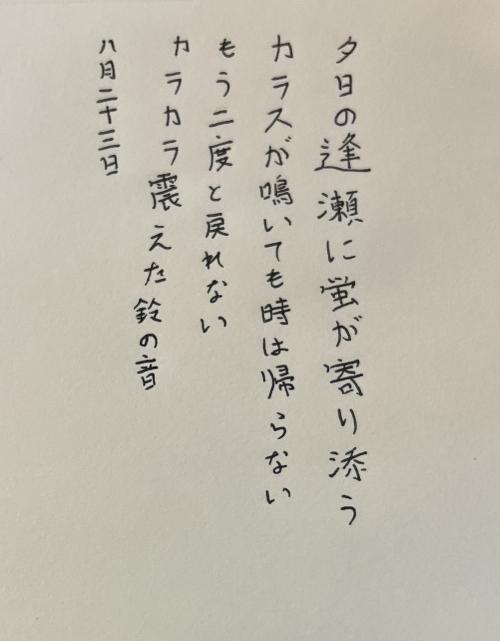 夕日の逢瀬に蛍が寄り添う
カラスが鳴いても時は帰らない
もう二度と戻れない
カラカラ震えた鈴の音
八月二十三日